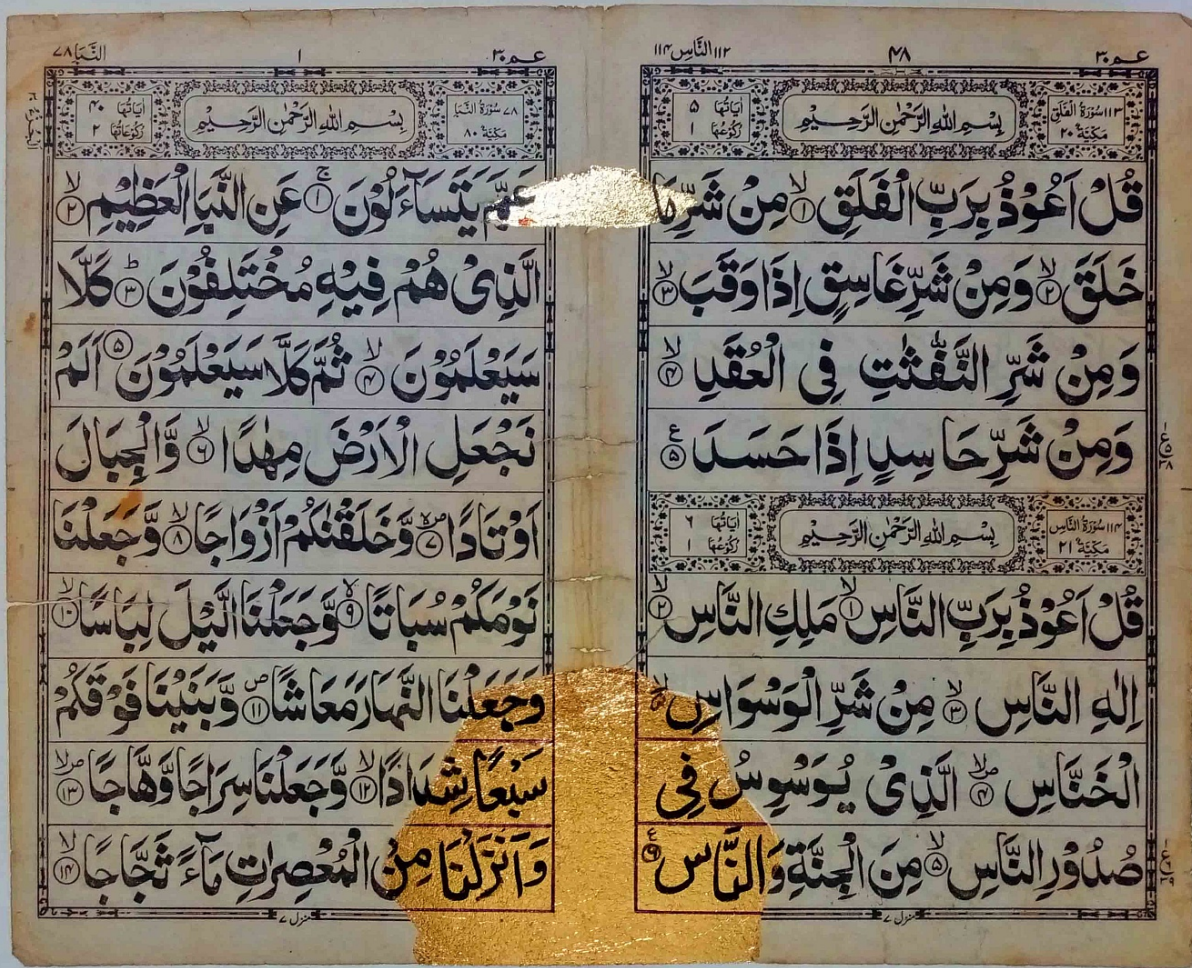 عـم ٣٠
٤٨
١١٢ النَّاس ١١٤
١١٣ سُوۡرَةُ الۡفَلَقِ
مَكِّيَّةٌ ٢٠
بِسۡمِ اللهِ الرَّحۡمٰنِ الرَّحِيۡمِ
اٰيَاتُهَا ٥
رُكُوۡعُهَا ١
قُلۡ اَعُوۡذُ بِرَبِّ الۡفَلَقِ ۙ﴿۱﴾ مِنۡ شَرِّ مَا
خَلَقَ ۙ﴿۲﴾ وَمِنۡ شَرِّ غَاسِقٍ اِذَا وَقَبَ ۙ﴿۳﴾
وَمِنۡ شَرِّ النَّفّٰثٰتِ فِى الۡعُقَدِ ۙ﴿۴﴾
وَمِنۡ شَرِّ حَاسِدٍ اِذَا حَسَدَ ﴿۵﴾ ع
١١٤ سُوۡرَةُ النَّاسِ
مَكِّيَّةٌ ٢١
بِسۡمِ اللهِ الرَّحۡمٰنِ الرَّحِيۡمِ
اٰيَاتُهَا ٦
رُكُوۡعُهَا ١
قُلۡ اَعُوۡذُ بِرَبِّ النَّاسِ ۙ﴿۱﴾ مَلِكِ النَّاسِ ۙ﴿۲﴾
اِلٰهِ النَّاسِ ۙ﴿۳﴾ مِنۡ شَرِّ الۡوَسۡوَاسِ
الۡخَنَّاسِ ۙ﴿۴﴾ الَّذِىۡ يُوَسۡوِسُ فِى
صُدُوۡرِ النَّاسِ ۙ﴿۵﴾ مِنَ الۡجِنَّةِ وَالنَّاسِ ﴿۶﴾ ع
منزل ٧
عـم ٣٠
١
النَّبَا ٧٨
٧٨ سُوۡرَةُ النَّبَا
مَكِّيَّةٌ ٨٠
بِسۡمِ اللهِ الرَّحۡمٰنِ الرَّحِيۡمِ
اٰيَاتُهَا ٤٠
رُكُوۡعَاتُهَا ٢
عَمَّ يَتَسَآءَلُوۡنَ ۚ﴿۱﴾ عَنِ النَّبَاِ الۡعَظِيۡمِ ۙ﴿۲﴾
الَّذِىۡ هُمۡ فِيۡهِ مُخۡتَلِفُوۡنَ ؕ﴿۳﴾ كَلَّا
سَيَعۡلَمُوۡنَ ۙ﴿۴﴾ ثُمَّ كَلَّا سَيَعۡلَمُوۡنَ ﴿۵﴾ اَلَمۡ
نَجۡعَلِ الۡاَرۡضَ مِهٰدًا ۙ﴿۶﴾ وَّالۡجِبَالَ
اَوۡتَادًا ۪ۙ﴿۷﴾ وَّخَلَقۡنٰكُمۡ اَزۡوَاجًا ۙ﴿۸﴾ وَّجَعَلۡنَا
نَوۡمَكُمۡ سُبَاتًا ۙ﴿۹﴾ وَّجَعَلۡنَا الَّيۡلَ لِبَاسًا ۙ﴿۱۰﴾
وَّجَعَلۡنَا النَّهَارَ مَعَاشًا ۪﴿۱۱﴾ وَّبَنَيۡنَا فَوۡقَكُمۡ
سَبۡعًا شِدَادًا ۙ﴿۱۲﴾ وَّجَعَلۡنَا سِرَاجًا وَّهَّاجًا ۪ۙ﴿۱۳﴾
وَّاَنۡزَلۡنَا مِنَ الۡمُعۡصِرٰتِ مَآءً ثَجَّاجًا ۙ﴿۱۴﴾
منزل ٧